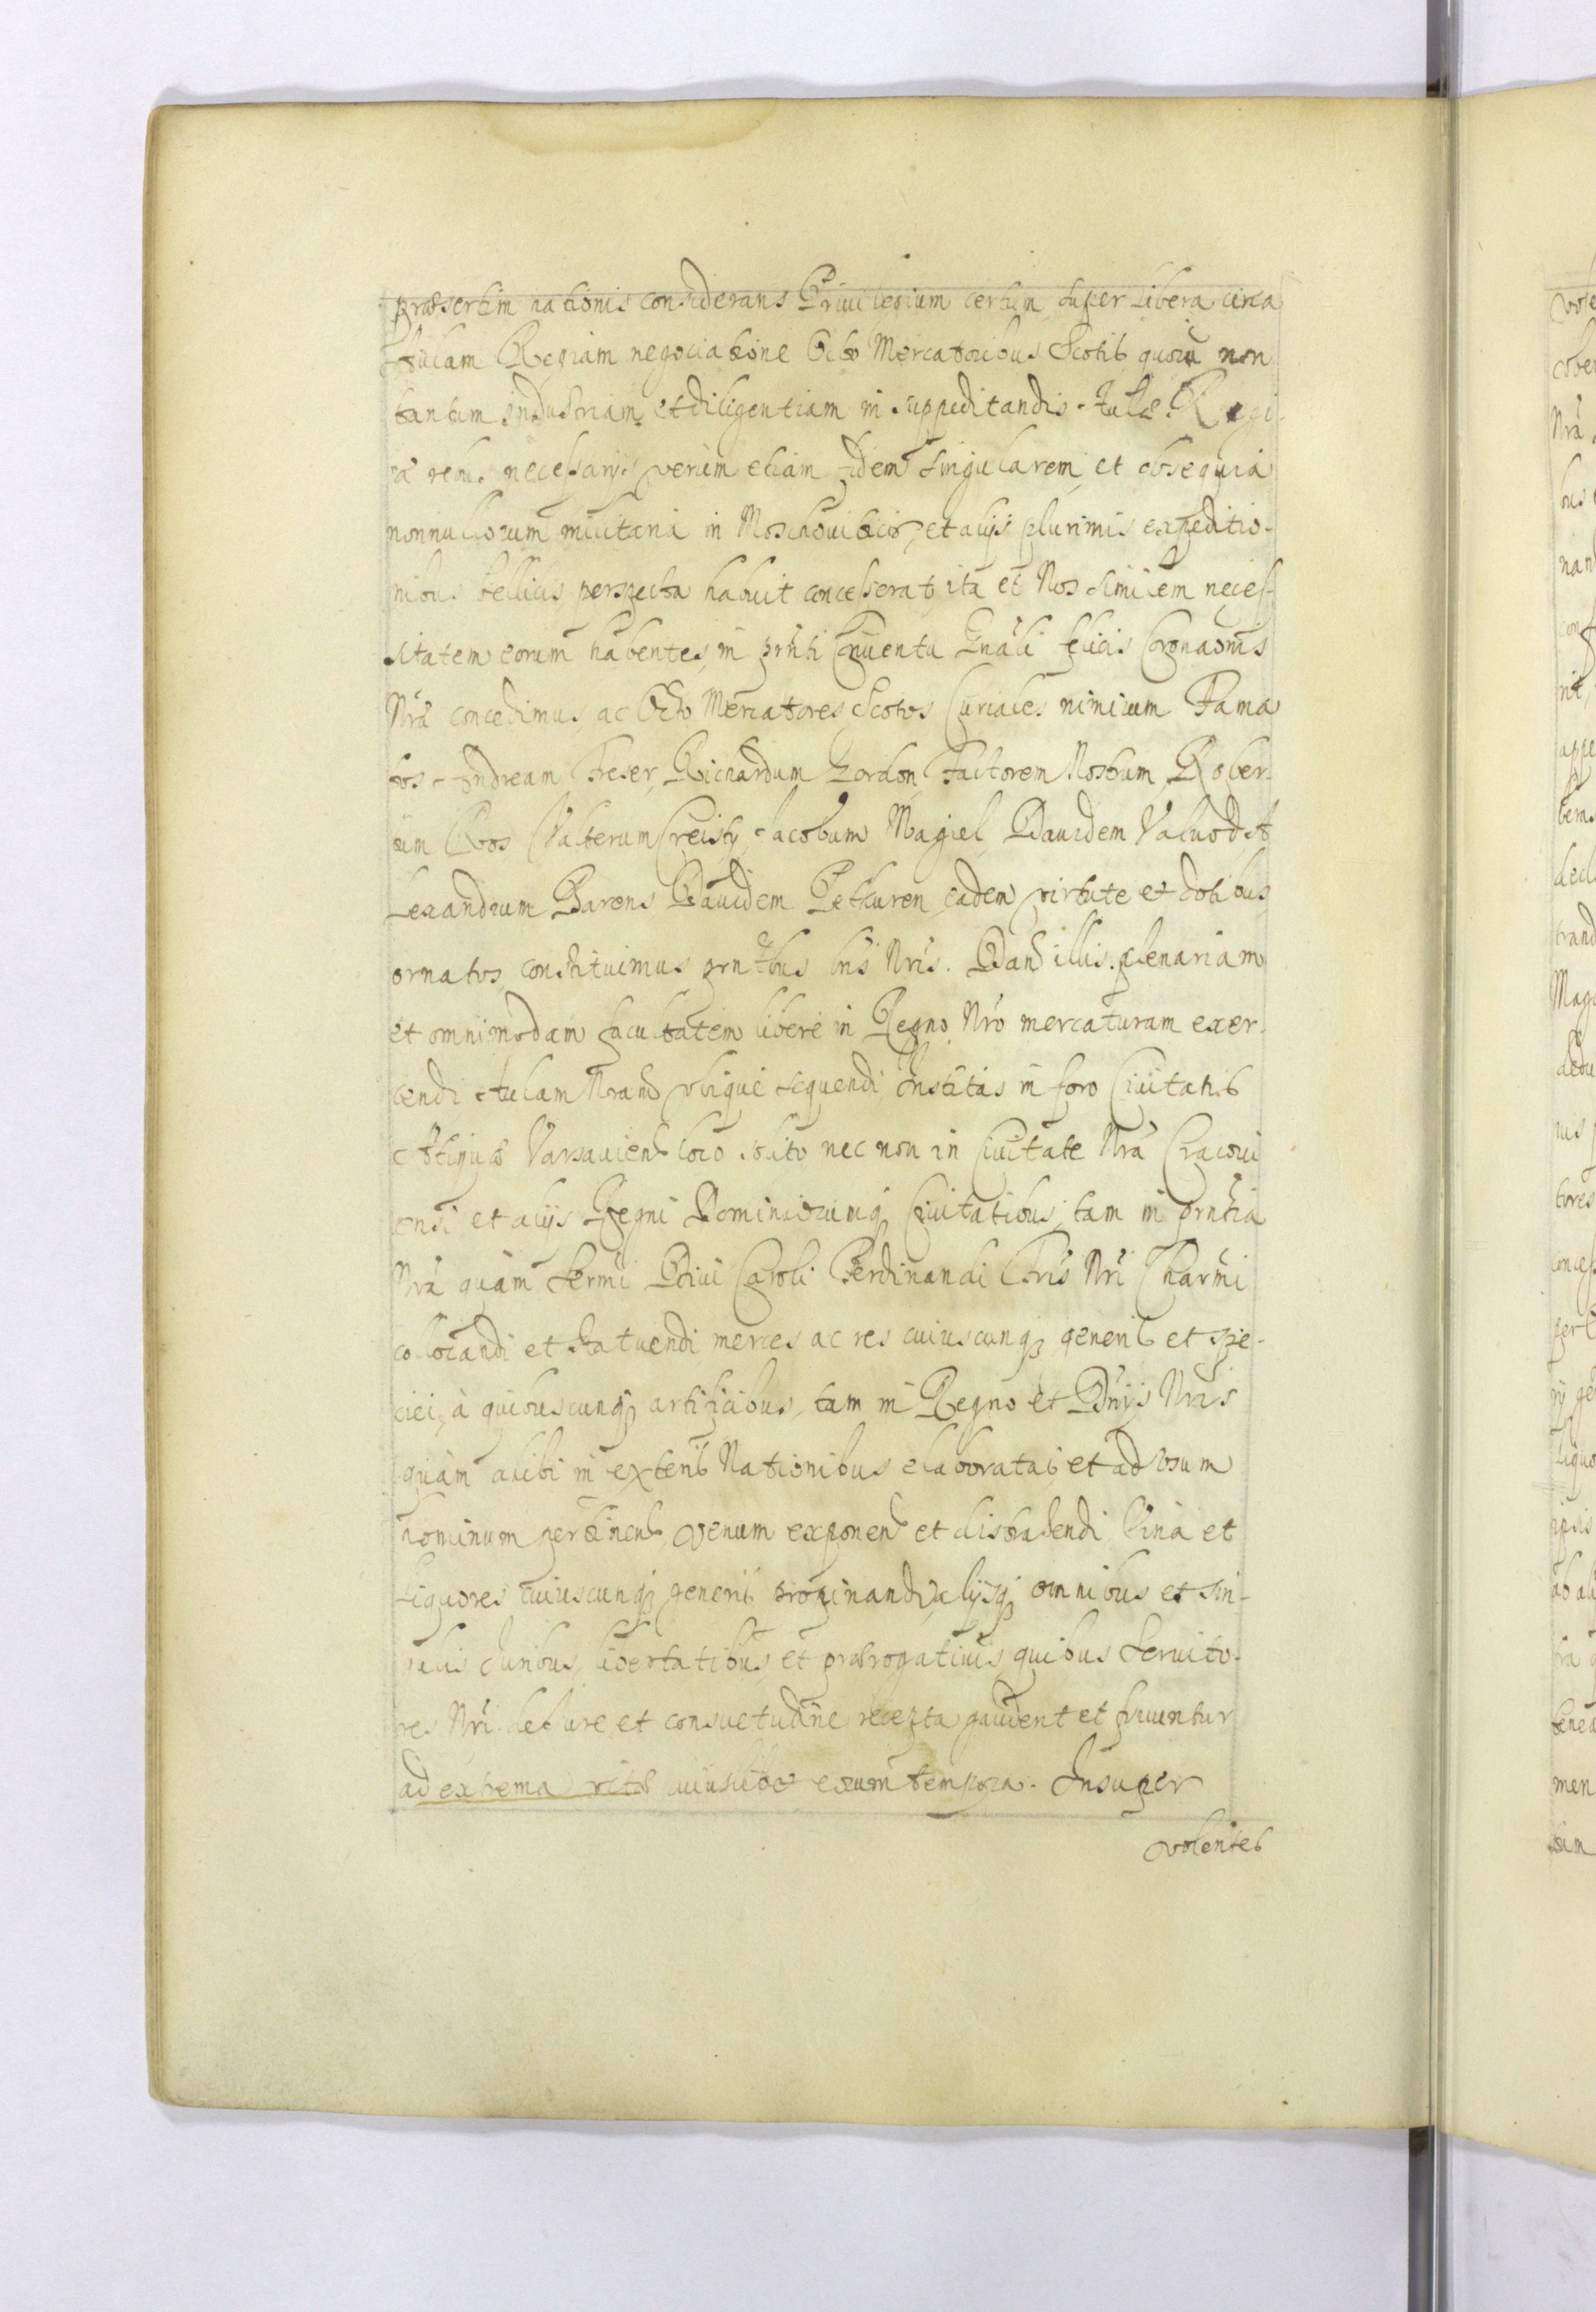 præsertim nationis considerans Priuilegium certum super libera circa
Aulam Regiam negociatione Octo Mercatoribus Scotis quorū non
tantum industriam et diligentiam in suppeditandis Aulæ Regi-
æ rebus necessarijs verùm etiam fidem singularem et obsequia
nonnullorum militaria in Moschouitica et alijs plurimis expeditio-
nibus bellicis perspecta habuit concesserat ita et Nos similem neces-
sitatem eorum habentes in prñti Conuentu Gnãli felicis Coronaõnis
Nrã concedimus ac Octo Mercatores Scotos Curiales nimirum Fama
tos Andream Freser, Richardum Gordon Factorem Nostrum Rober-
tum Valterum Creisty Jacobum Magiel Dauidem Valuod A
lexandrum Barens Dauidem Pethuren eadem virtute et dotibus
ornatos constituimus prñtbus lris Nris. Dand illis plenariam
et omnimodam facultatem liberè in Regno Nrõ mercaturam exer-
cendi Aulam Nram vbiquè sequendi Institas in foro Ciuitatis
Antiquæ Varsauiens loco solito nec non in Ciuitate Nrã Cracoui
ensi et alijs Regni Dominiorumq Ciuitatibus tam in prñtia
Nrã quàm Sermi Diui Caroli Ferdinandi Fris Nri Charmi
collocandi et statuendi merces ac res cuiuscunq generis et spe-
ciei, à quibuscunq artificibus, tam in Regno et Dnijs Nris
quàm alibi in exteris Nationibus elaboratas et ad vsum
hominum pertinens venum exponend et distrahendi Vina et
Liquores cuiuscunq generis propinandi alijsq omnibus et sin-
gulis Juribus, libertatibus et prærogatiuis quibus Seruito-
res Nri de Iure et consuetudine recepta gaudent et fruuntur
ad extrema vitæ cuiuslibet eorum tempora. Insuper
volentes